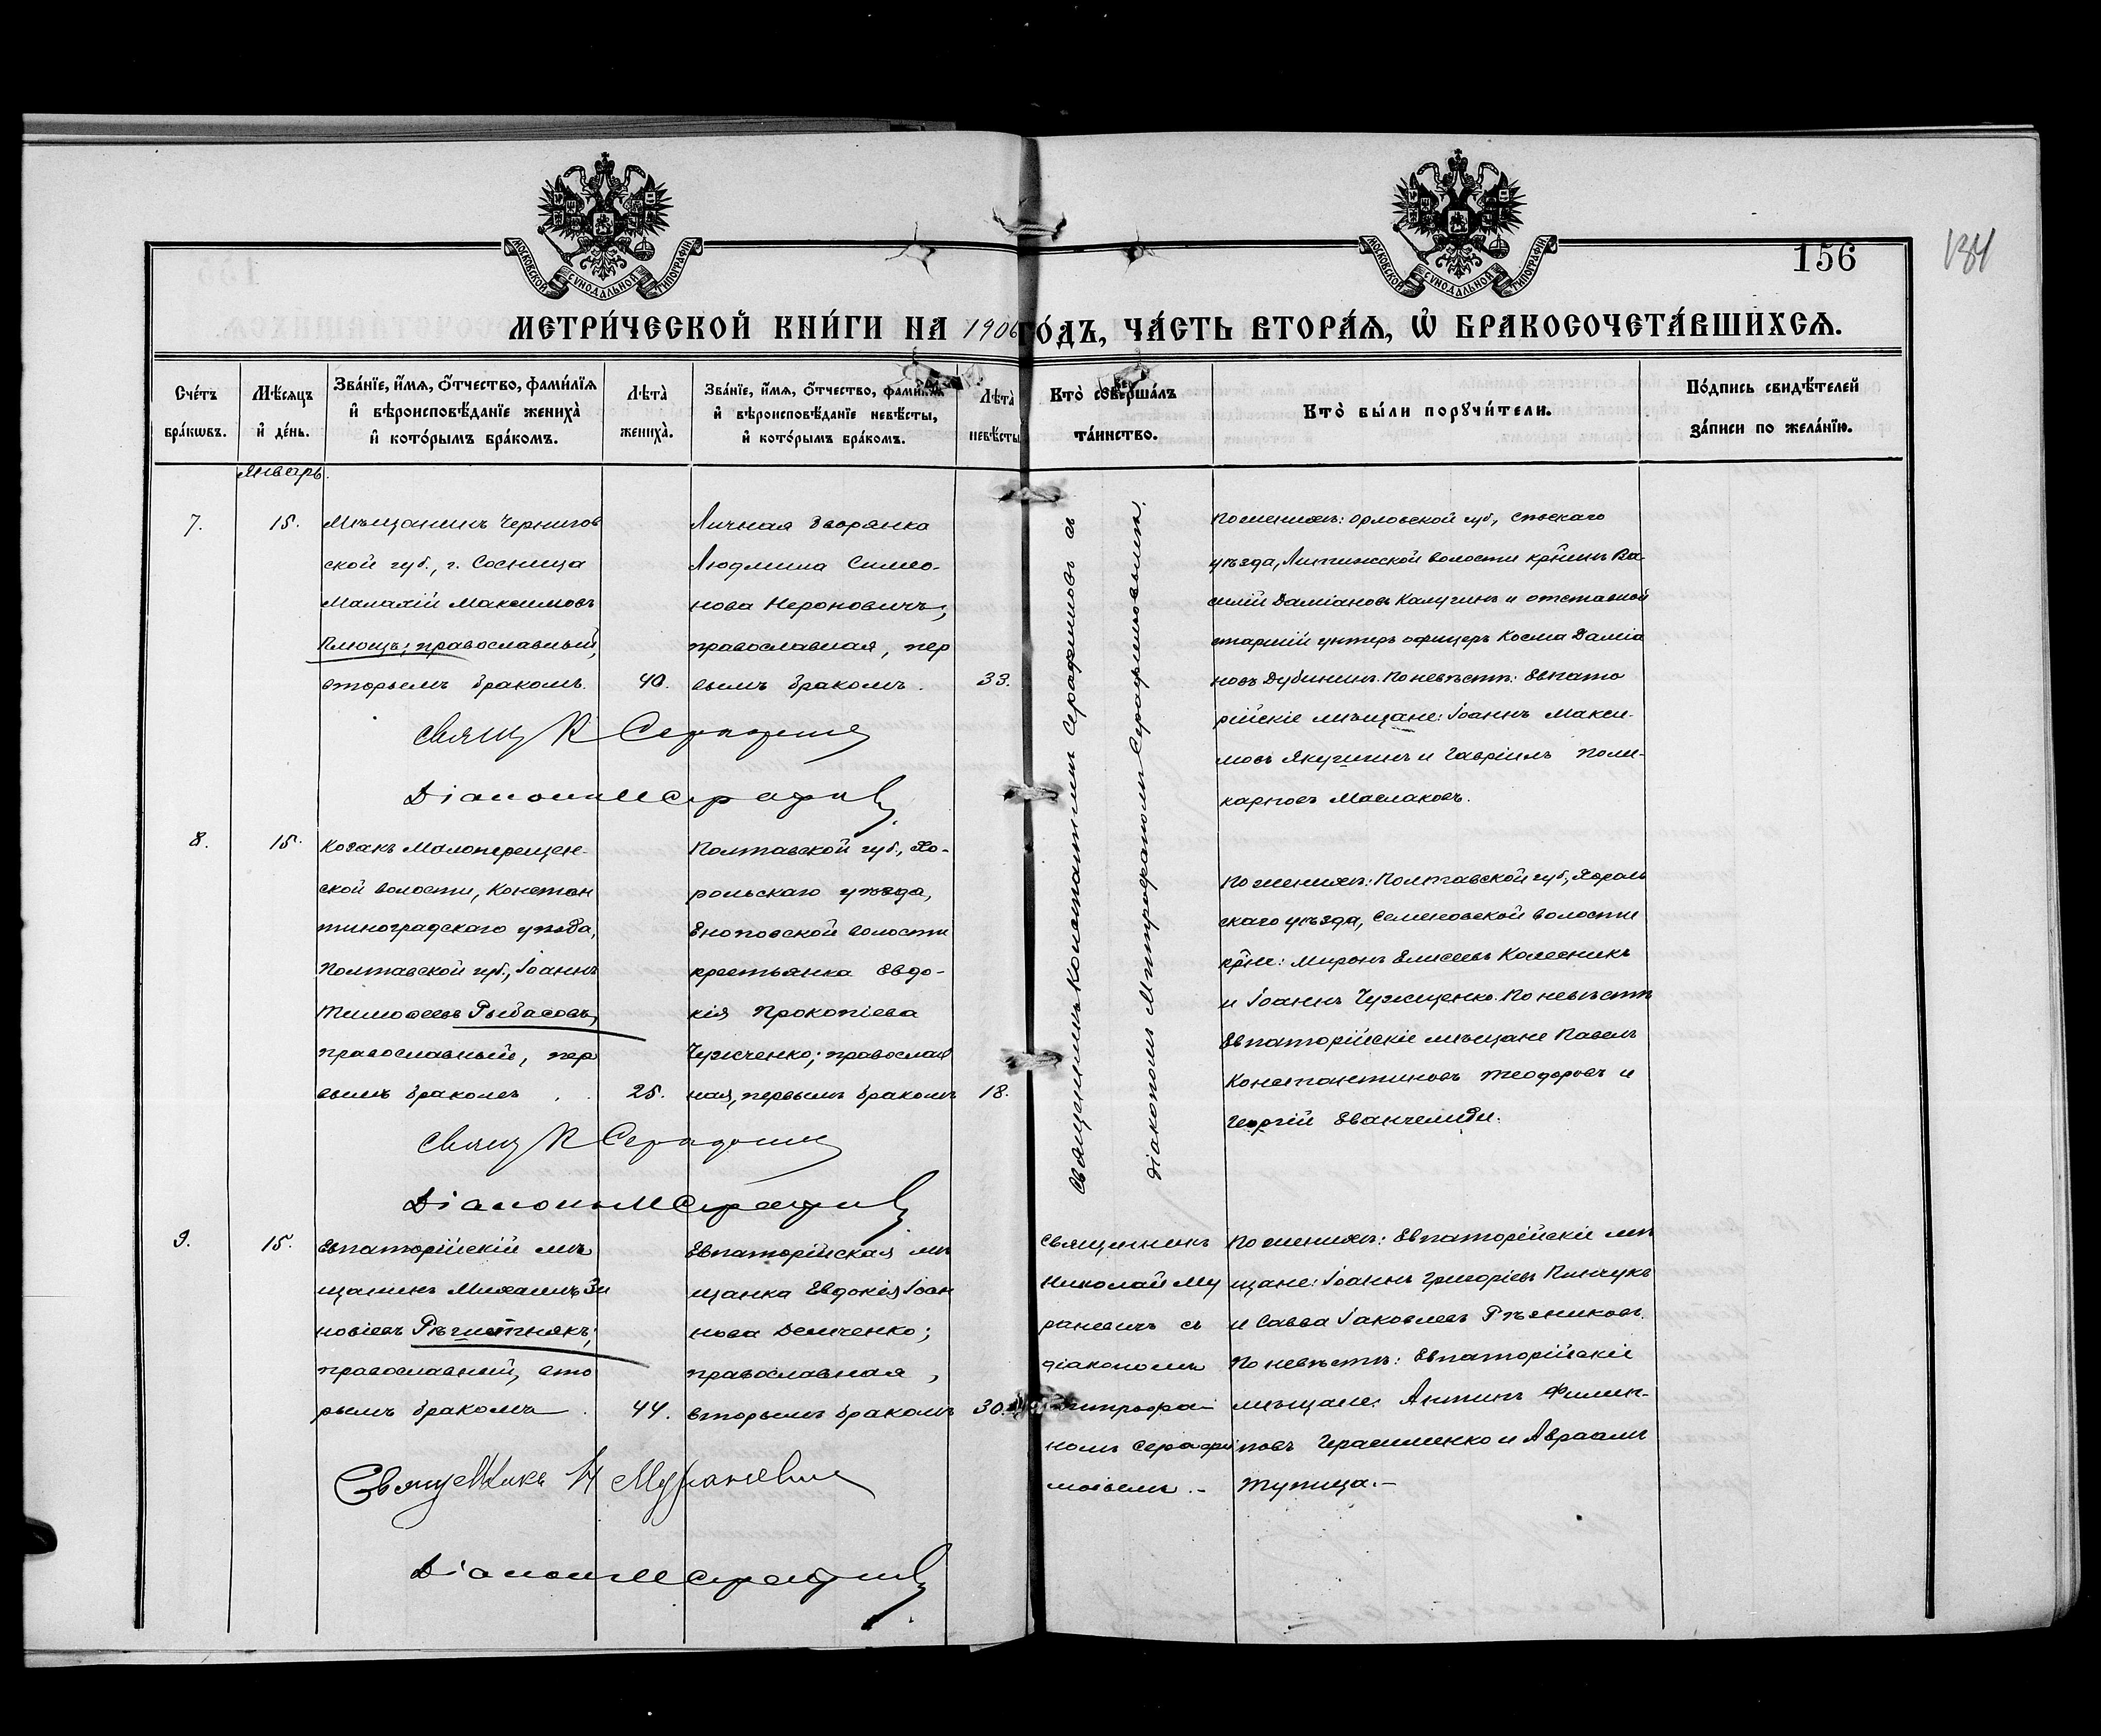 МОСКОВСКОЙ СѴНОДАЛЬНОЙ ТИПОГРАФІИ
МОСКОВСКОЙ СѴНОДАЛЬНОЙ ТИПОГРАФІИ
156
184
МЕТРИ́ЧЕСКОЙ КНИ́ГИ НА 1906 ГО́ДЪ, ЧА́СТЬ ВТОРА́Ѧ, Ѡ҆ БРАКОСОЧЕТА́ВШИХСѦ.
Сче́тъ бра́кѡвъ.
Мѣ́сѧцъ и҆ де́нь.
Зва́нїе, и҆́мѧ, ѻ҆́тчество, фами́лїѧ
и҆ вѣроисповѣ́данїе жениха̀
и҆ кото́рымъ бра́комъ.
Лѣта̀ жениха̀.
Зва́нїе, и҆́мѧ, ѻ҆́тчество, фами́лїѧ
и҆ вѣроисповѣ́данїе невѣ́сты,
и҆ кото́рымъ бра́комъ.
Лѣта̀ невѣ́сты
Кто̀ соверша́лъ
та́инство.
Кто̀ бы́ли порꙋчи́тели.
По́дпись свидѣ́телей
за́писи по жела́нїю.
Январь.
7.
15.
Мѣщанинъ Чернигов
ской губ., г. Сосница
Малахій Максимовъ
Плющъ; православный,
вторымъ бракомъ.
40.
Личная дворянка
Людмила Симео-
нова Нероновичъ;
православная, пер
вымъ бракомъ.
33.
Священникъ Константинъ Серафимовъ съ
діакономъ Митрофаномъ Серафимовымъ.
По женихѣ: Орловской губ., Сѣвскаго
уѣзда, Литижской волости кр̃нинъ Ва-
силій Даміановъ Калугинъ и отставной
старшій унтеръ офицеръ Косма Даміа
новъ Дубининъ. По невѣстѣ: Евпато
рійскіе мѣщане: Іоаннъ Макси-
мовъ Якушинъ и Гавріилъ Поли-
карповъ Маслаковъ.
Свящ К Серафимов
Діаконъ М Серафимовъ
8.
15.
Козакъ Малоперещен-
ской волости, Констан
тиноградскаго уѣзда,
Полтавской губ., Іоаннъ
Тимоѳеевъ Рыбасовъ,
православный, пер
вымъ бракомъ
25.
Полтавской губ., Хо-
рольскаго уѣзда,
волости
крестьянка Евдо-
кія Прокопіева
Чужченко; православ
ная, первымъ бракомъ
18.
По женихѣ: Полтавской губ., Хороль
скаго уѣзда, Семеновской волости
кр̃не: Миронъ Елисеевъ Колесникъ
и Іоаннъ По невѣстѣ
Евпаторійскіе мѣщане Павелъ
Константиновъ Теодоровъ и
Георгій Еванчелиди.
Свящ К Серафимов
Діаконъ М Серафимовъ
9.
15.
Евпаторійскій мѣ
щанинъ Михаилъ Зи
новіевъ Рѣшетнякъ;
православный, вто
рымъ бракомъ
44.
Евпаторійская мѣ
щанка Евдокія Іоан
нова Демченко;
православная,
вторымъ бракомъ
30.
Священникъ
Николай Му
раневичъ съ
діакономъ
Митрофа-
номъ Серафи
мовымъ. –
По женихѣ: Евпаторійскіе мѣ
щане: Іоаннъ Григоріевъ Пинчукъ
и Савва Іаковлевъ Рѣзниковъ.
По невѣстѣ: Евпаторійскіе
мѣщане: Антипъ Филип-
повъ Герасименко и Авраамъ
Тупица. –
Священникъ Н Мураневич
Діаконъ М Серафимовъ